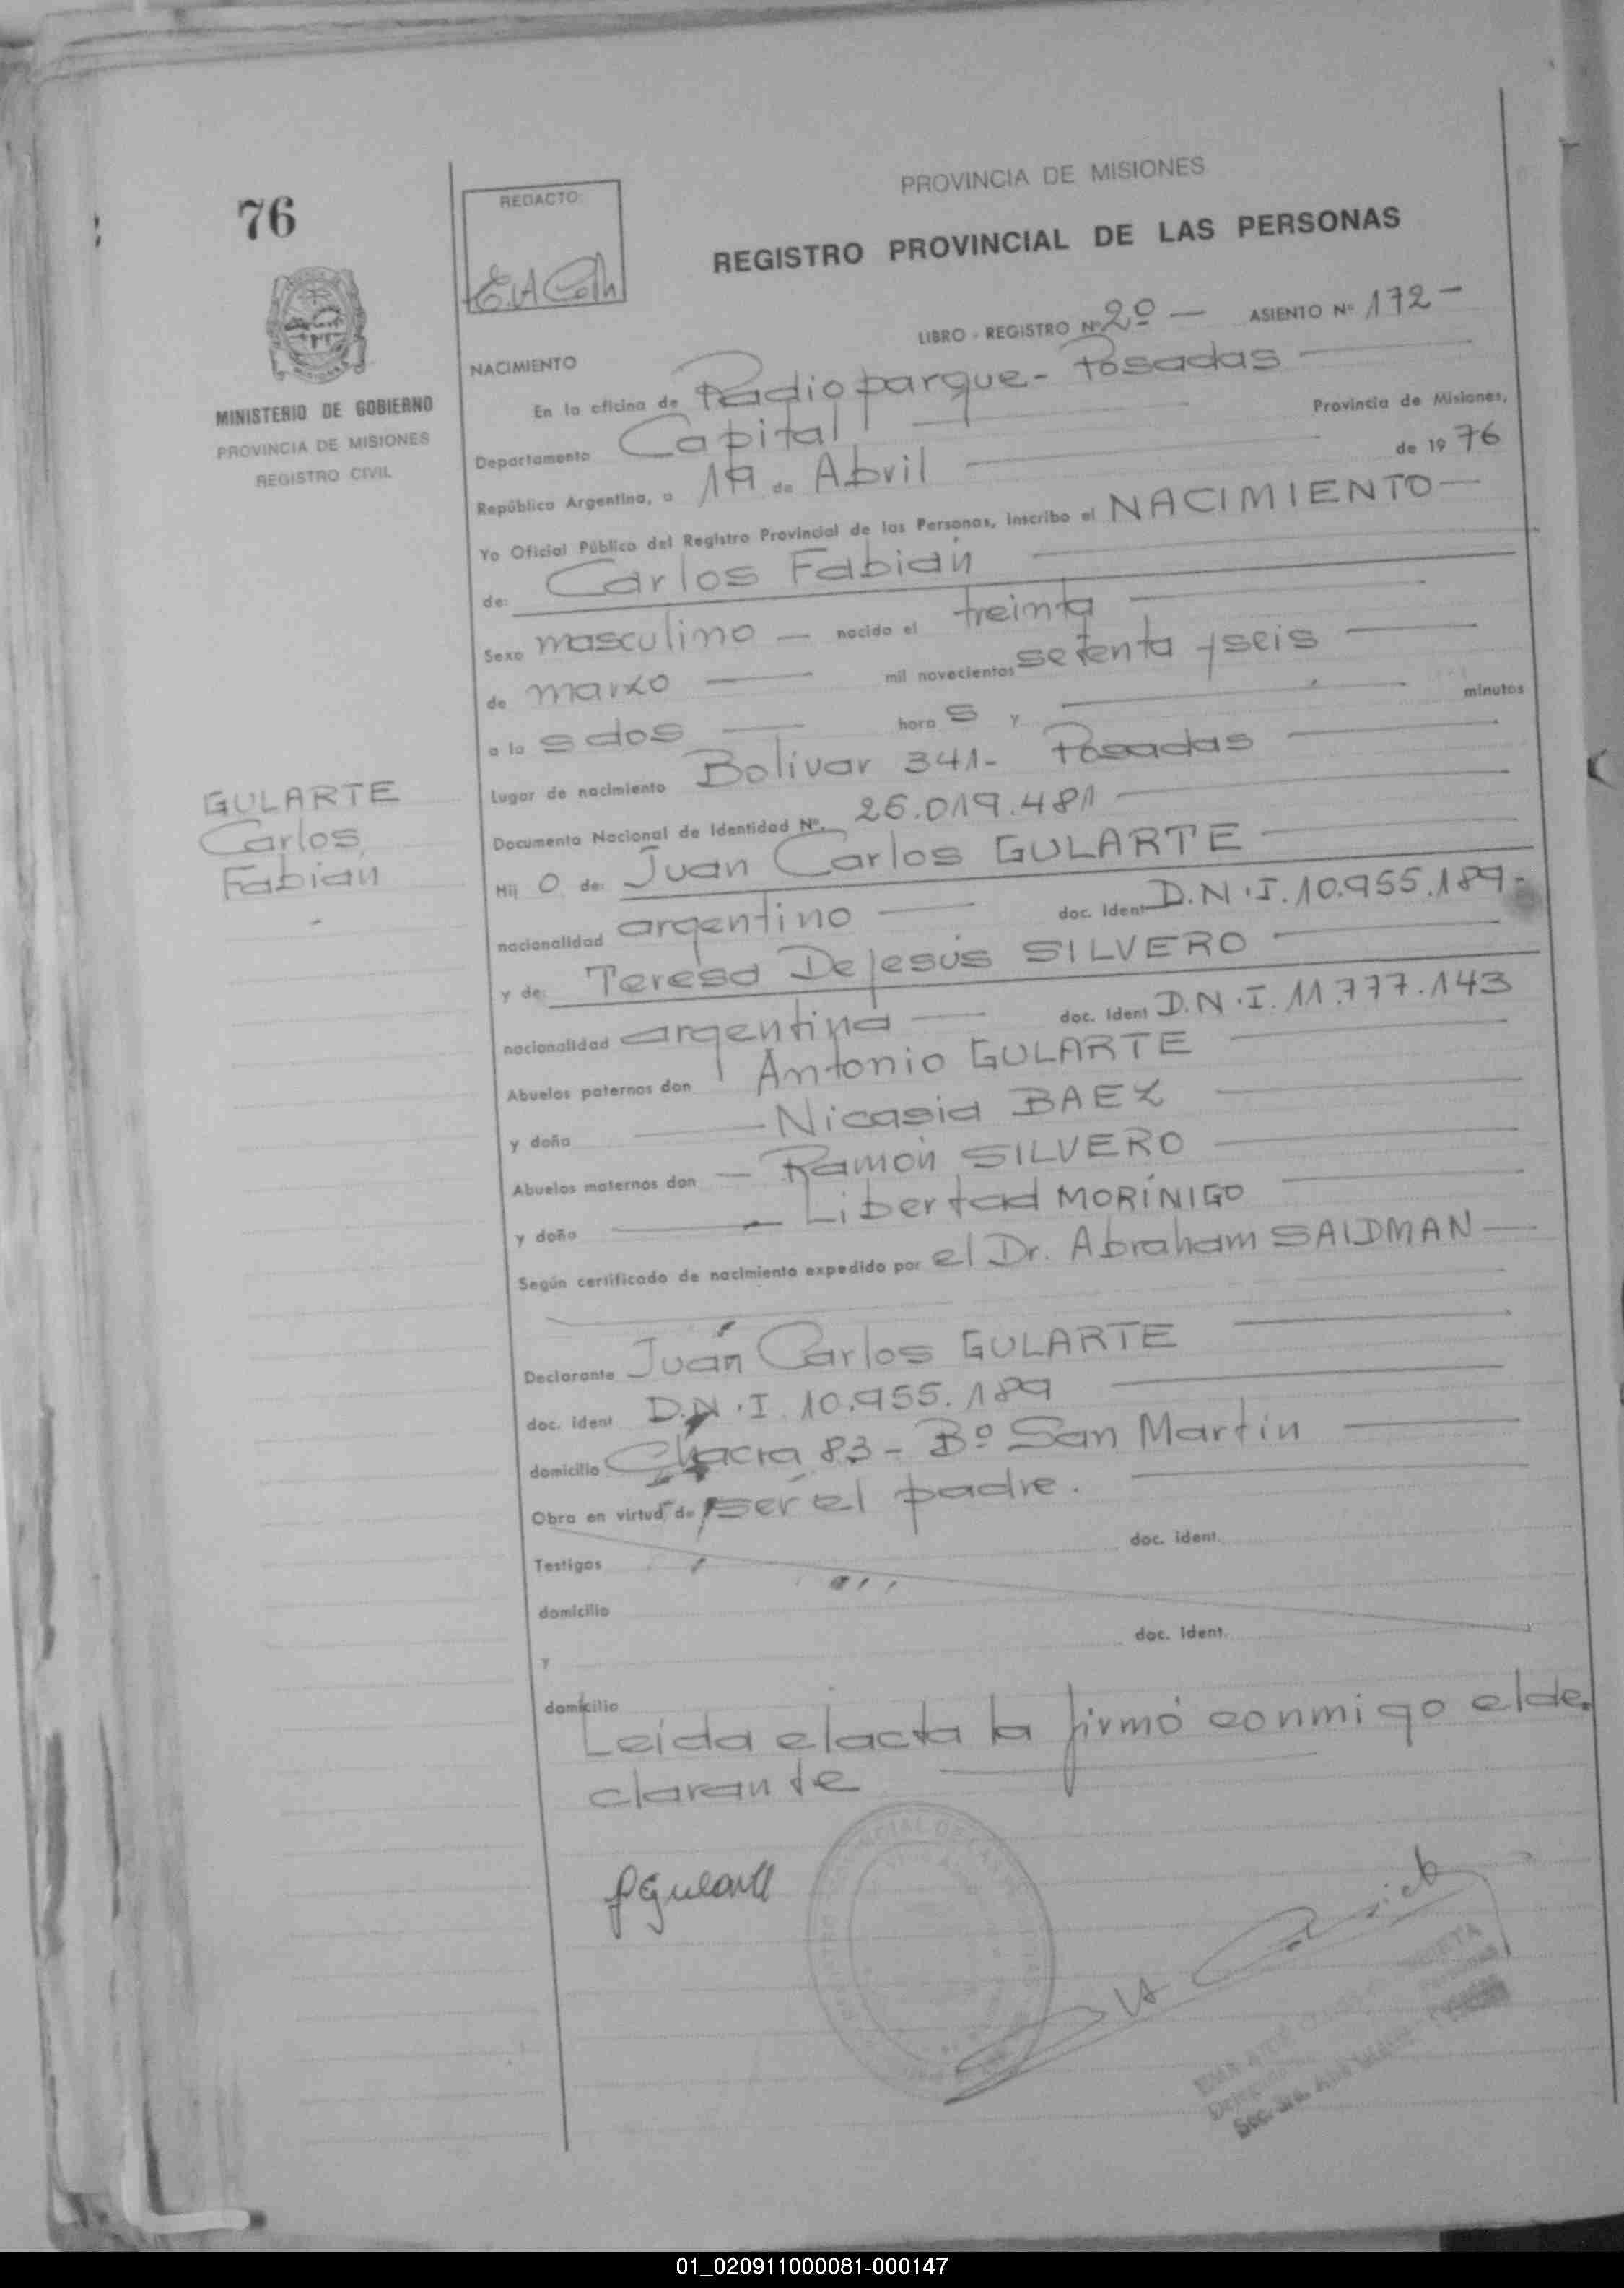 76
REDACTO:
PROVINCIA DE MISIONES
REGISTRO PROVINCIAL DE LAS PERSONAS
MINISTERIO DE GOBIERNO
PROVINCIA DE MISIONES
REGISTRO CIVIL
LIBRO - REGISTRO Nº 2º — ASIENTO Nº 172 —
NACIMIENTO
En la oficina de Radioparque - Posadas
Departamento Capital Provincia de Misiones,
República Argentina, a 19 de Abril de 19 76
Yo Oficial Público del Registro Provincial de las Personas, inscribo el NACIMIENTO —
de: Carlos Fabián
Sexo masculino — nacido el treinta
de marzo — mil novecientos setenta y seis
a la s dos — hora s y — minutos
Lugar de nacimiento Bolivar 341 - Posadas
Documento Nacional de Identidad Nº. 25.019.481
GULARTE
Carlos
Fabián
Hij o de: Juan Carlos GULARTE
nacionalidad argentino — doc. Ident D.N.I. 10.955.189 -
y de: Teresa De Jesús SILVERO
nacionalidad argentina — doc. Ident D.N.I. 11.777.143
Abuelos paternos don Antonio GULARTE
y doña Nicasia BAEZ
Abuelos maternos don — Ramón SILVERO
y doña Libertad MORÍNIGO
Según certificado de nacimiento expedido por el Dr. Abraham SAIDMAN —
Declarante Juan Carlos GULARTE
doc. ident D.N.I. 10.955.189
domicilio Chacra 83 - Bº San Martín
Obra en virtud de ser el padre.
Testigos doc. ident.
domicilio
y doc. Ident.
domicilio
Leida el acta la firmó conmigo el de.
clarante
01_020911000081-000147